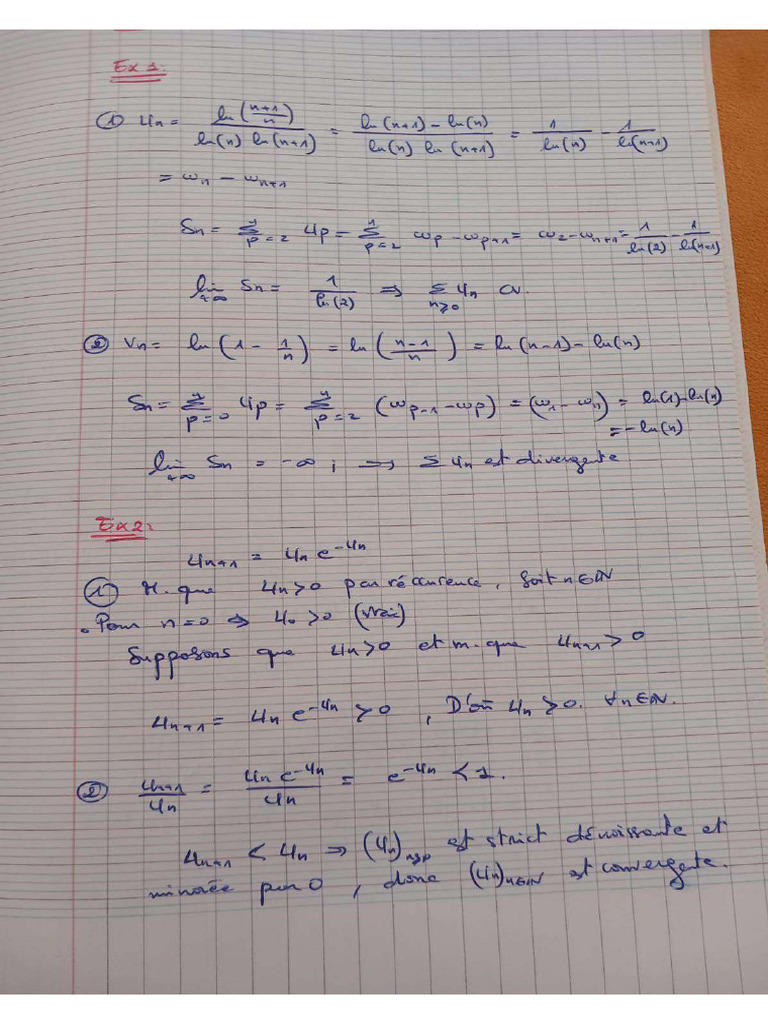 Ex 1.
① Un = ln((n+1)/n) / (ln(n) ln(n+1)) = (ln(n+1) - ln(n)) / (ln(n) ln(n+1)) = 1/ln(n) - 1/ln(n+1)
= wn - wn+1
Sn = Σ_{p=2}^{n} Up = Σ_{p=2}^{n} wp - wp+1 = w2 - wn+1 = 1/ln(2) - 1/ln(n+1)
lim_{+∞} Sn = 1/ln(2) ⇒ Σ_{n≥0} Un CV.
② Vn = ln(1 - 1/n) = ln((n-1)/n) = ln(n-1) - ln(n)
Sn = Σ_{p=0}^{n} Up = Σ_{p=2}^{n} (wp-1 - wp) = (w1 - wn) = ln(1) - ln(n)
= -ln(n)
lim_{+∞} Sn = -∞ ; ⇒ Σ Un est divergente
Ex 2:
Un+1 = Un e^{-Un}
① M. que Un > 0 par récurrence, soit n ∈ IN
. Pour n = 0 ⇒ U0 > 0 (vraie)
Supposons que Un > 0 et m. que Un+1 > 0
Un+1 = Un e^{-Un} > 0 , D'où Un > 0. ∀n ∈ IN.
② Un+1/Un = Un e^{-Un}/Un = e^{-Un} < 1.
Un+1 < Un ⇒ (Un)_{n≥0} est strict décroissante et
minorée par 0 , donc (Un)_{n∈IN} est convergente.